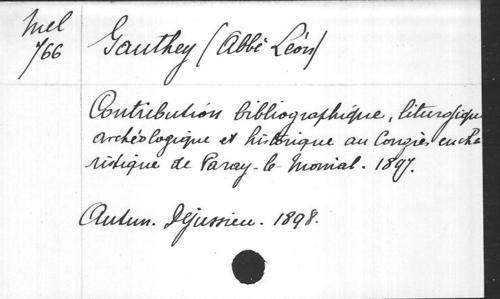 Mel
766
Gauthey (Abbé Léon)
Contribution bibliographique, liturgique
archéologique et historique au Congrès eucha
ristique de Paray-le-Monial. 1897.
Autun. Dejussieu. 1898.